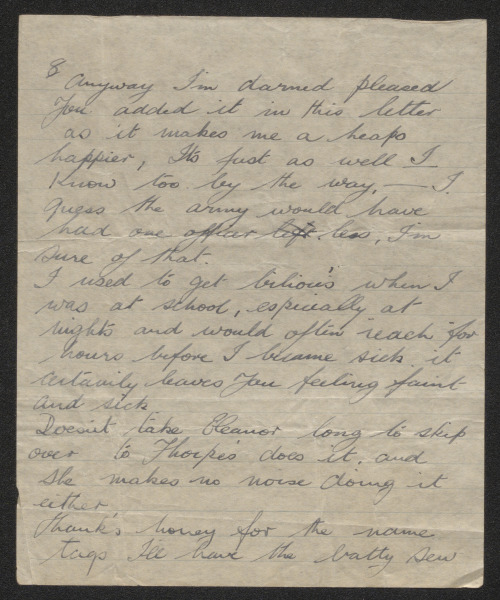 8 Anyway I'm darned pleased
you added it in this letter
as it makes me a heaps
happier, Its just as well I
know too by the way, — I
guess the army would have
had one less, I'm
sure of that.
I used to get bilious when I
was at school, especially at
nights and would often reach for
hours before I became sick it
certainly leaves you feeling faint
and sick
Doesn't take Eleanor long to skip
over to Thorpe's does it, and
she makes no noise doing it
either.
Thank's honey for the name
tags I'll have the batty sew